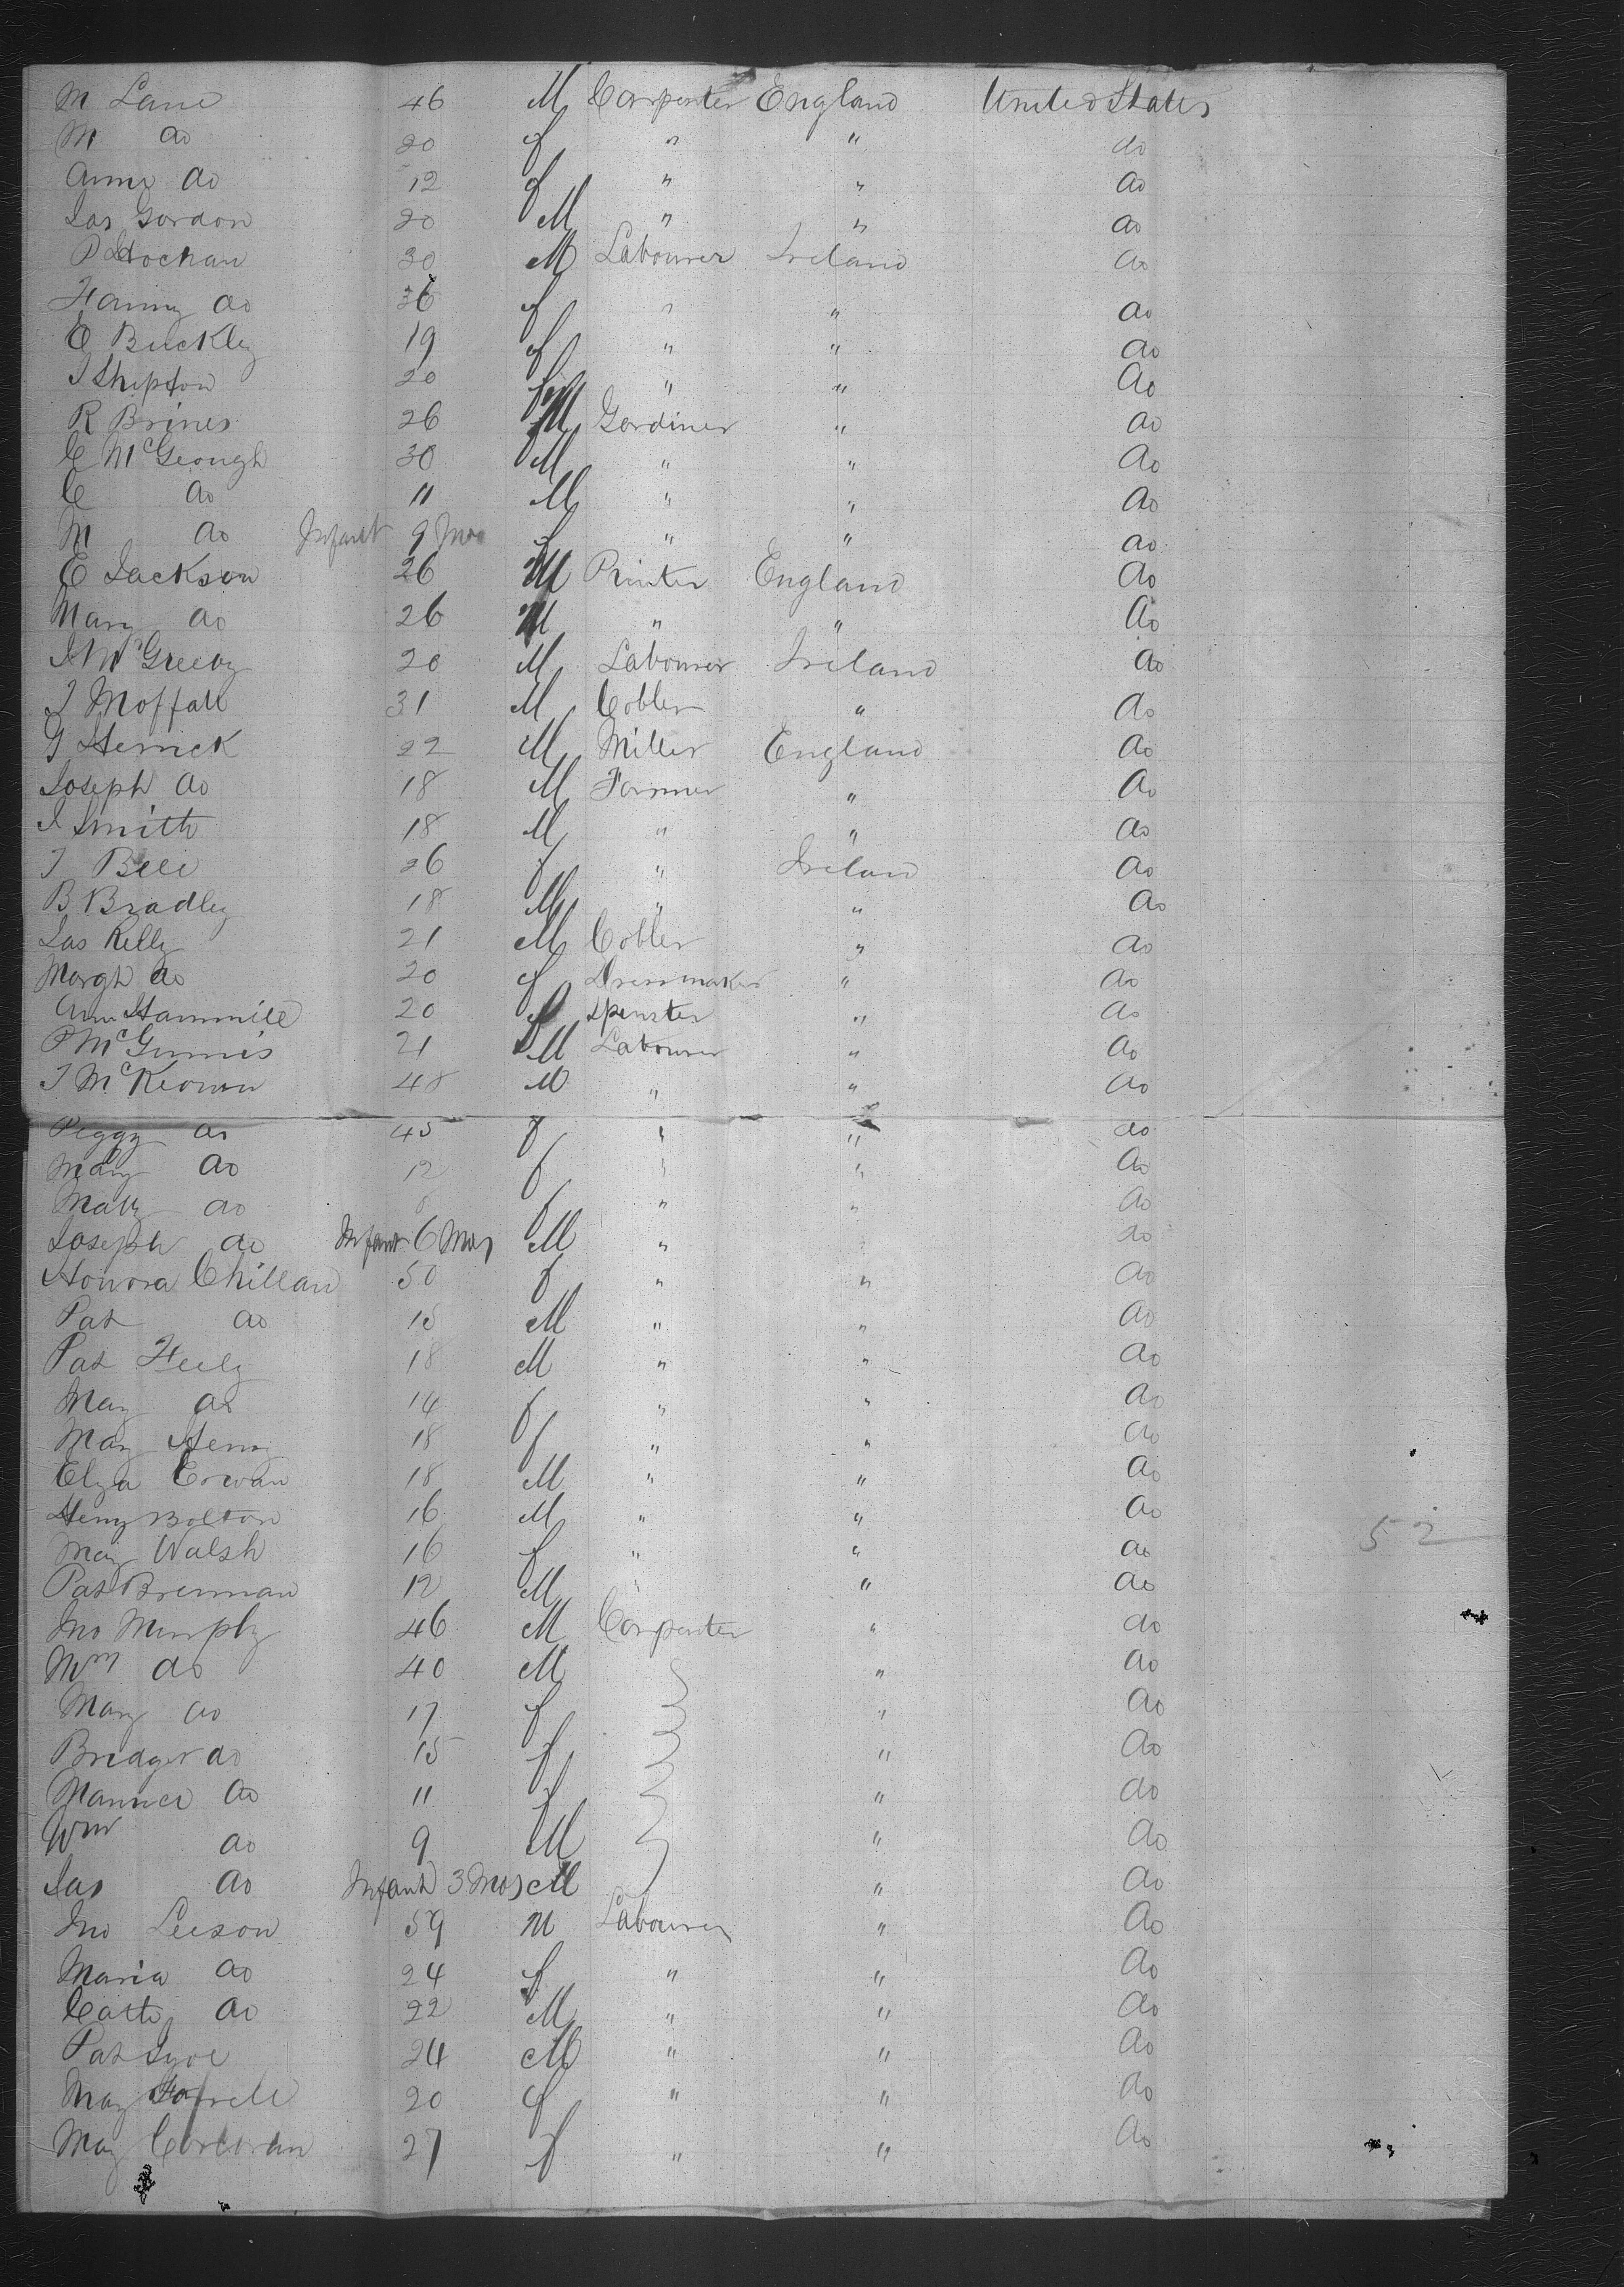 M Lane 46 M Carpenter England United States
M do 20 f " " do
Anne do 12 f " " do
Jas Gordon 20 M " " do
P 30 M Labourer Ireland do
Fanny do 36 f " " do
E Buckley 19 f " " do
J Shipton 20 f " " do
R Brines 26 M Gardiner " do
C McGeough 30 M " " do
C do 11 M " " do
M do Infant 9 Mos f " " do
E Jackson 26 M Printer England do
Mary do 26 M " " do
J McGreevy 20 M Labourer Ireland do
J Moffatt 31 M Cobler " do
G Herrick 22 M Miller England do
Joseph do 18 M Farmer " do
J Smith 18 M " " do
J Bell 26 f " Ireland do
B Bradley 18 M " " do
Jas Kelly 21 M Cobler " do
Margt do 20 f Dressmaker " do
Ann Hammill 20 f Spinster " do
P McGinnis 21 M Labourer " do
J McKeown 48 M " " do
Peggy do 45 f " " do
Mary do 12 f " " do
Matty do 8 f " " do
Joseph do Infant 6 Mos M " " do
Honora Chillan 50 f " " do
Pat do 15 M " " do
Pat Feely 18 M " " do
May do 14 f " " do
May Henry 18 f " " do
Elza Erwan 18 M " " do
Henry Bolton 16 M " " do
May Walsh 16 f " " do
Pat Brennan 12 M " " do
Jno Murphy 46 M Carpenter " do
Mrs do 40 M " do
Mary do 17 f " do
Bridget do 15 f " do
Maurice do 11 f " do
Wm do 9 M " do
Jas do Infant 3 Mos M " do
Jno Leeson 59 M Labourer " do
Maria do 24 f " " do
Cath do 22 M " " do
Pat 24 M " " do
May Farrell 20 f " " do
May Corcoran 27 f " " do
52